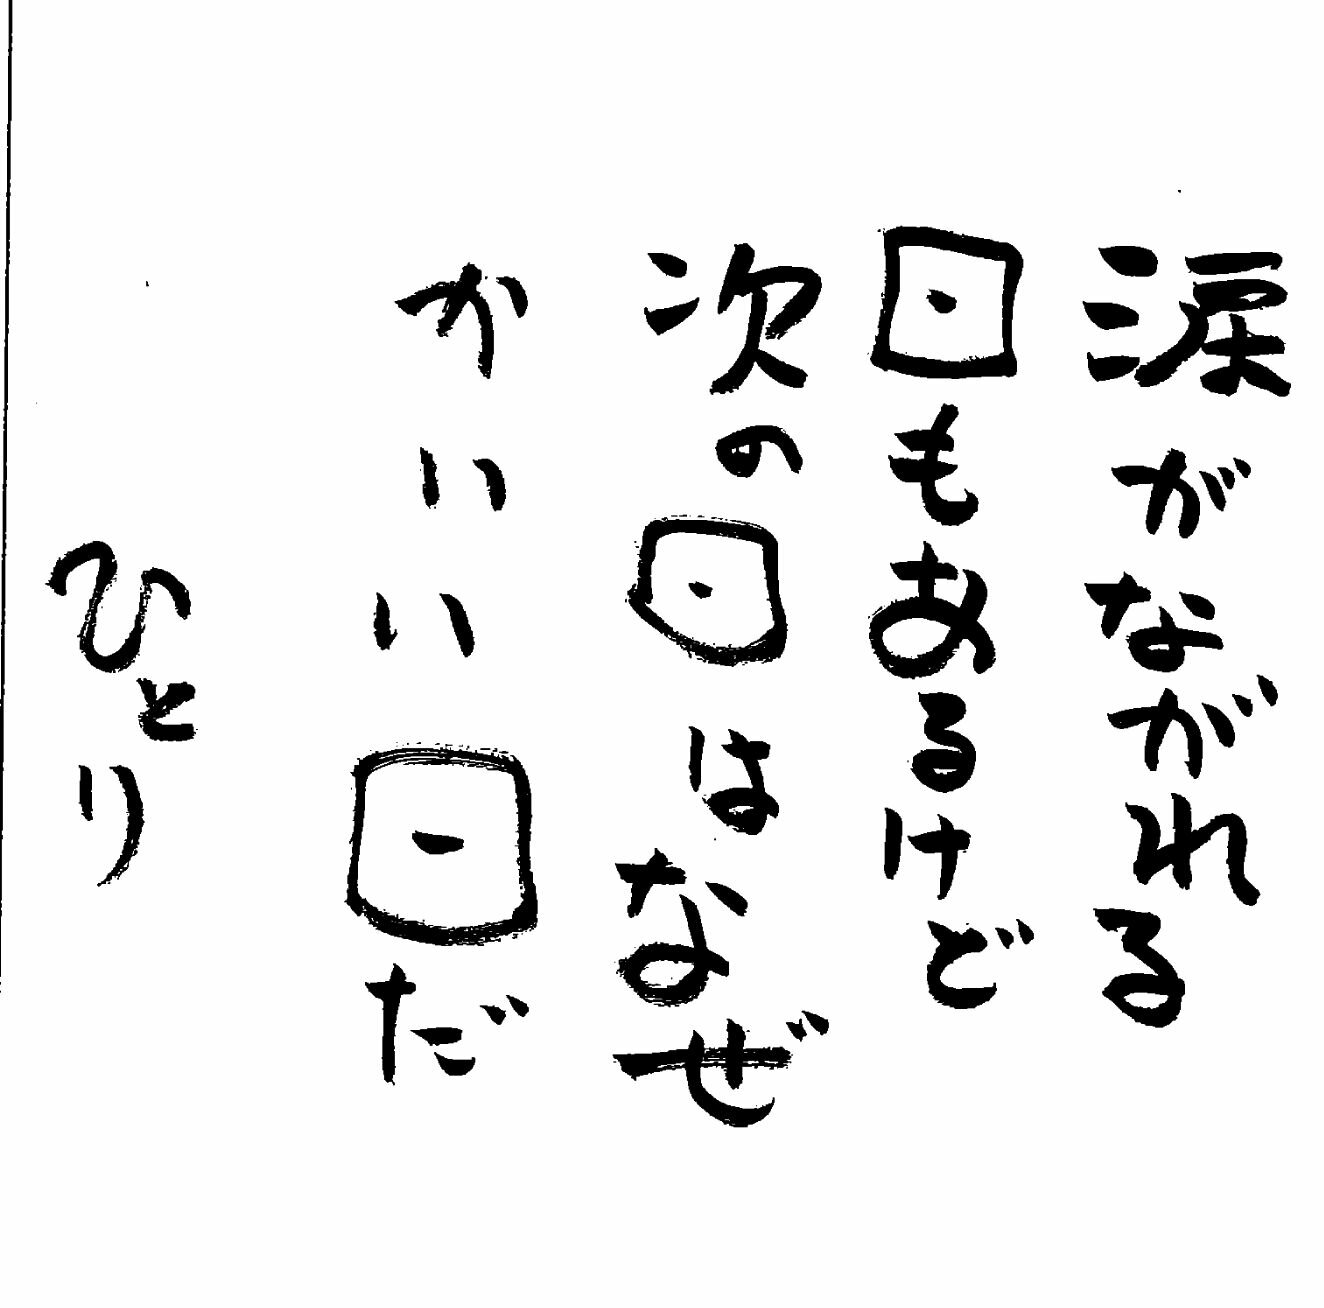 涙がながれる
日もあるけど
次の日はなぜ
かいい日だ
ひとり